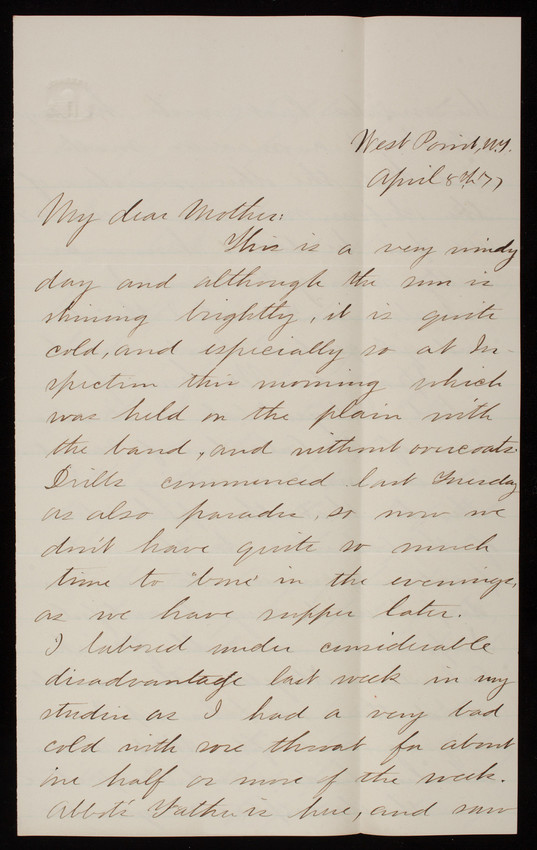 West Point, N.Y.
April 8th, 77
My dear Mother:
This is a very windy
day and although the sun is
shining brightly, it is quite
cold, and especially so at In-
spection this morning which
was held on the plain with
the band, and without overcoats.
Drills commenced last Tuesday
as also parades, so now we
don't have quite so much
time to "bone" in the evenings,
as we have supper later.
I labored under considerable
disadvantage last week in my
studies as I had a very bad
cold with sore throat for about
one half or more of the week.
Abbot's Father is here, and saw